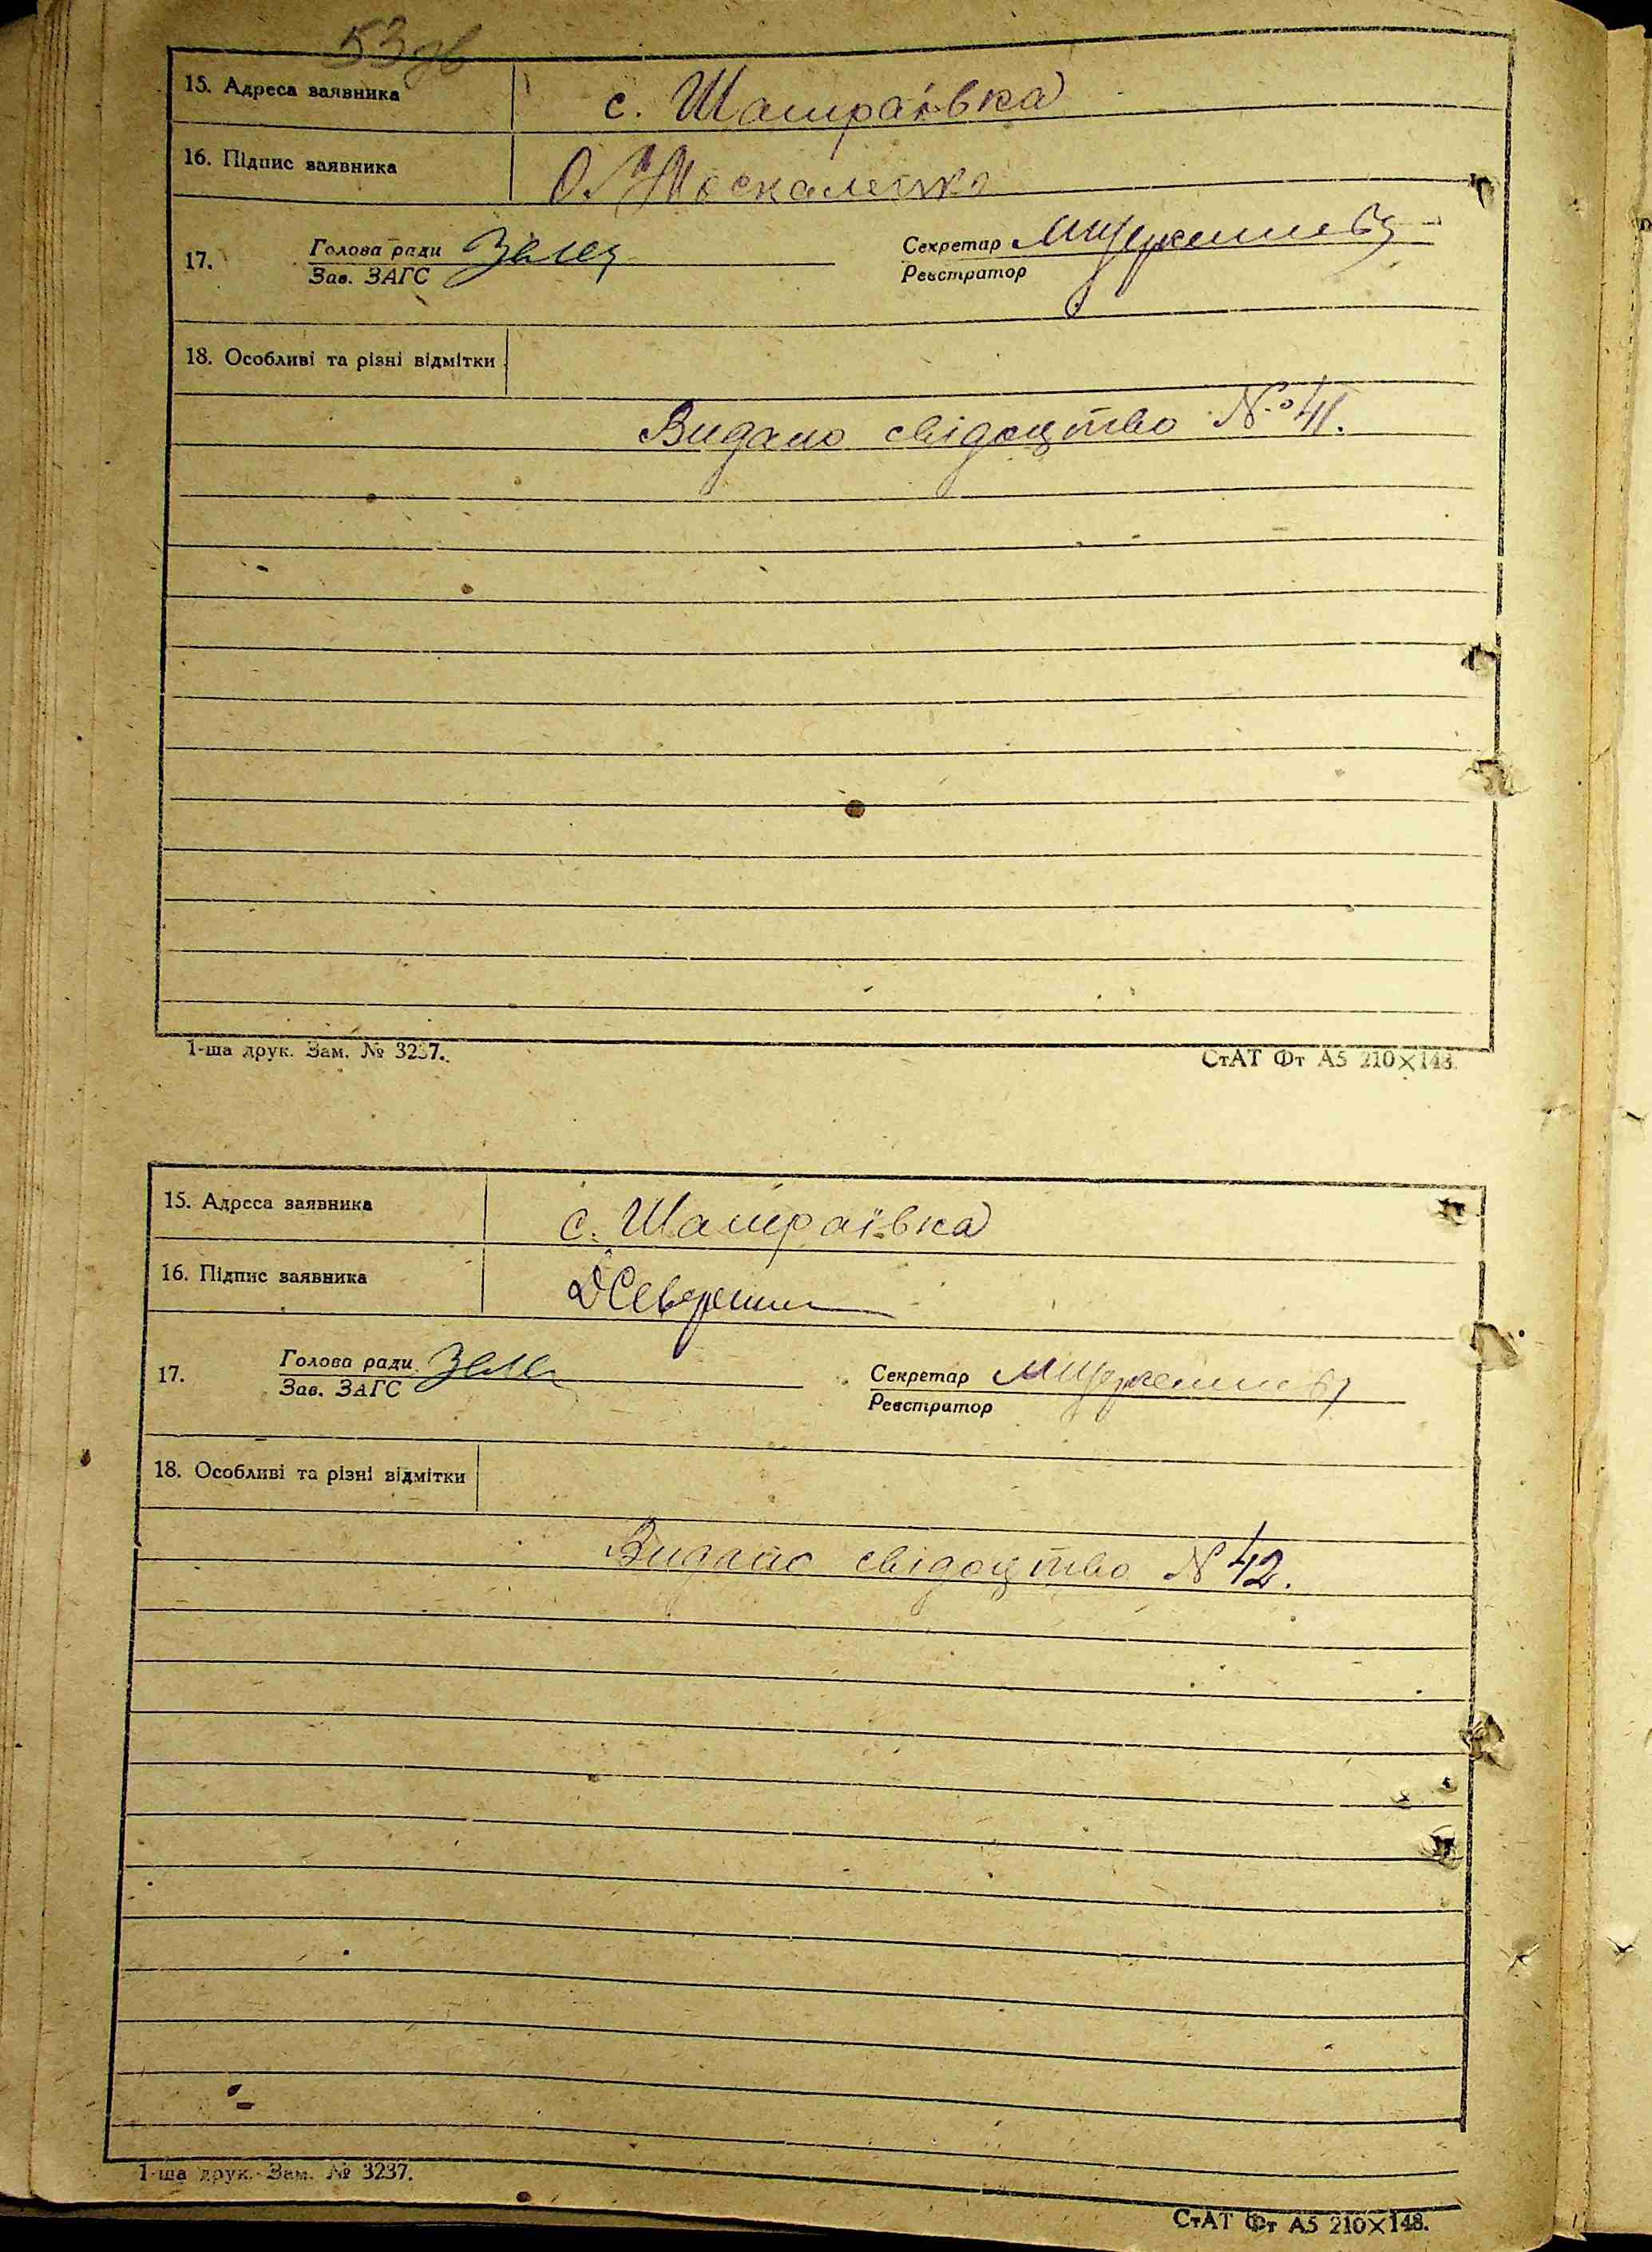 53 зв
15. Адреса заявника с. Шамраївка
16. Підпис заявника О. Москаленко
17. Голова ради Секретар
Зав. ЗАГС Реєстратор
18. Особливі та різні відмітки
Видано свідоцтво № 41.
1-ша друк. Зам. № 3237.
СтАТ Фт А5 210×148.
15. Адреса заявника с. Шамраївка
16. Підпис заявника
17. Голова ради Секретар
Зав. ЗАГС Реєстратор
18. Особливі та різні відмітки
Видано свідоцтво N 42.
1-ша друк. Зам. № 3237.
СтАТ Фт А5 210×148.